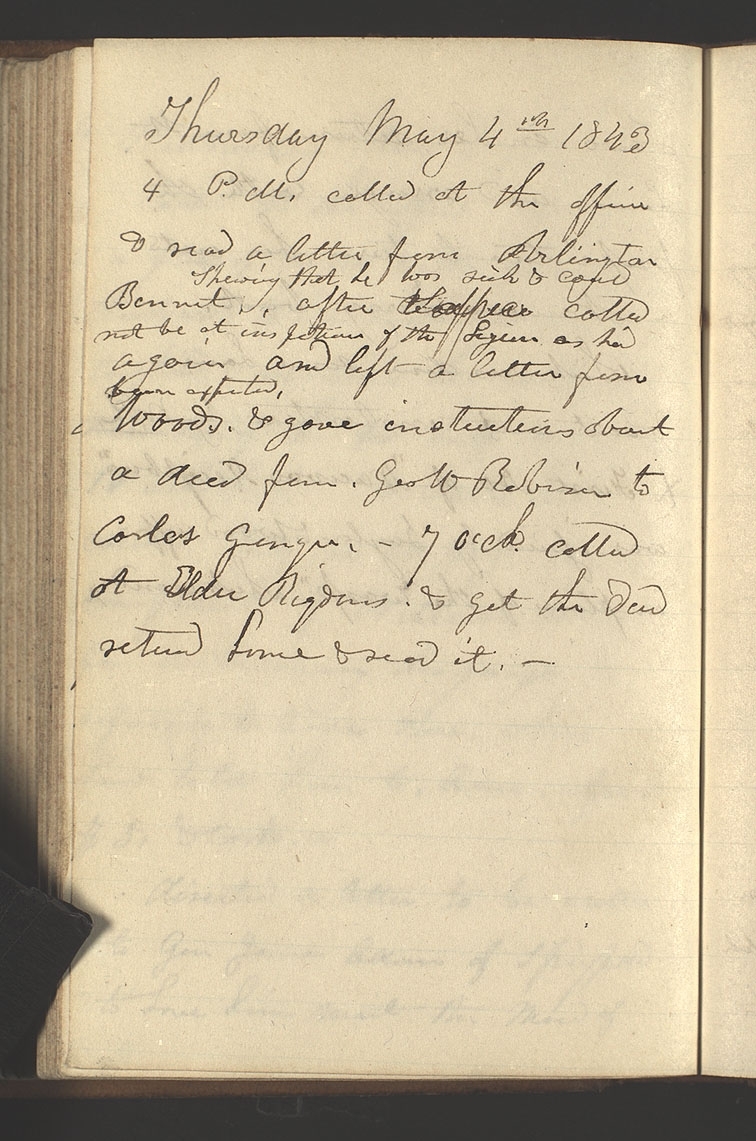 Thursday May 4th 1843
4 P.M. called at the office
& read a letter from Arlington
Shewing that he was sick & could
Bennet, after called
not be at inspection of the Legion as had
again and left a letter from
been expected,
Woods. & gave instructions about
a deed from. Geo W Robinson to
Carlos Granger. - 7 o'ck. called
at Elder Rigdons. & get the Deed
returned home & read it. —